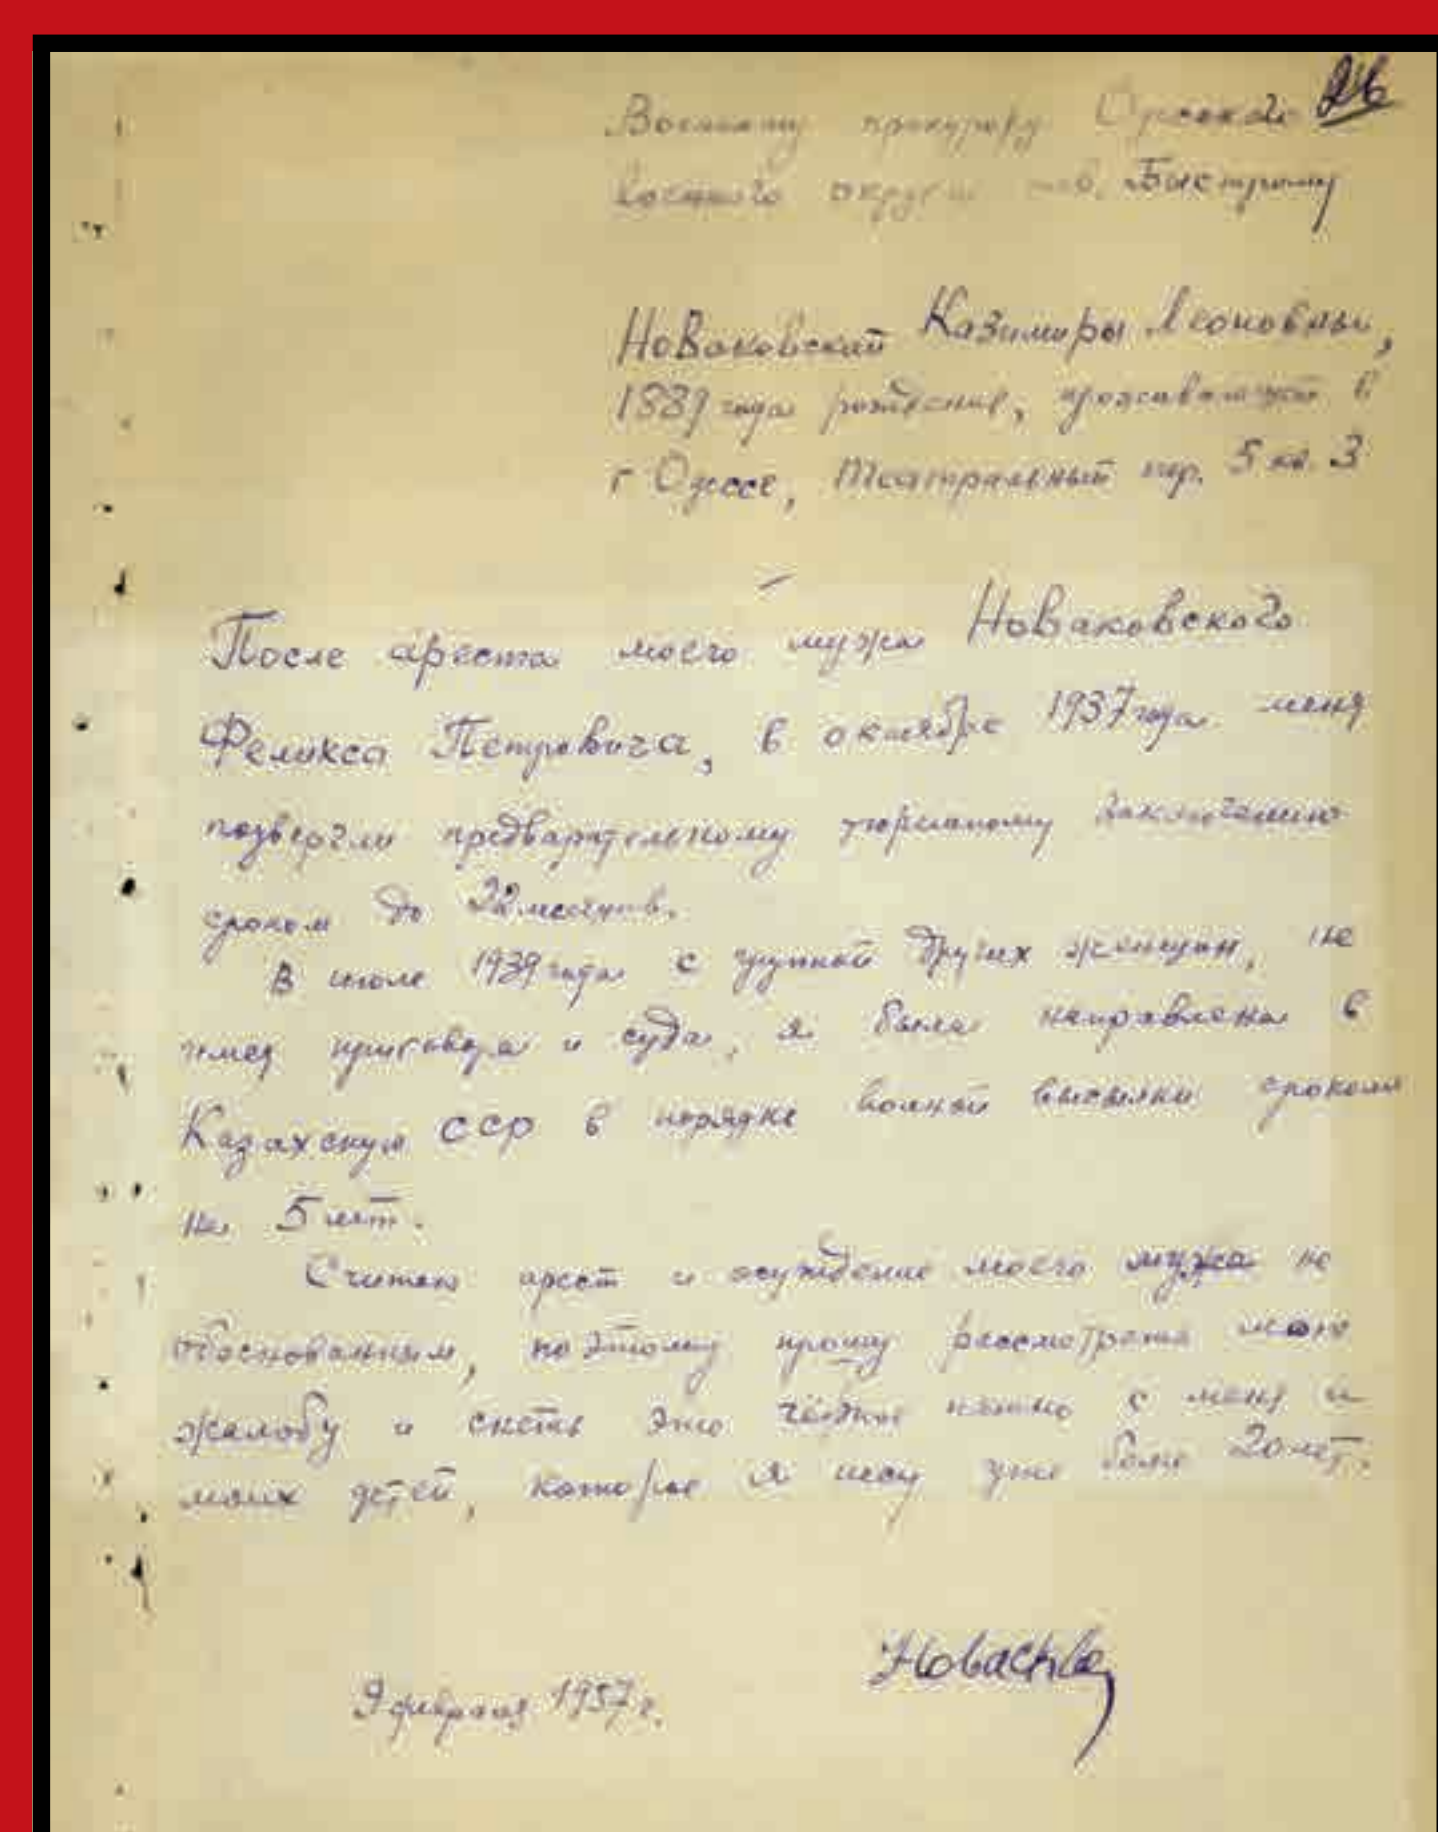 26
Военному прокурору Одесского
военного округа тов. Быстрому
Новаковской Казимиры Леоновны,
1889 года рождения, проживающей в
г Одессе, Театральный пер. 5 кв. 3
После ареста моего мужа Новаковского
Феликса Петровича, в октябре 1937 года меня
подвергли предварительному тюремному заключению
сроком до 22 месяцев.
В июле 1939 года с группой других женщин, не
имея приговора и суда, я была направлена в
Казахскую ССР в порядке вольной высылки сроком
на 5 лет.
Считаю арест и осуждение моего мужа не
обоснованным, по этому прошу рассмотреть мою
жалобу и снять это чёрное пятно с меня и
моих детей, которое я несу уже более 20 лет.
9 февраля 1957 г.